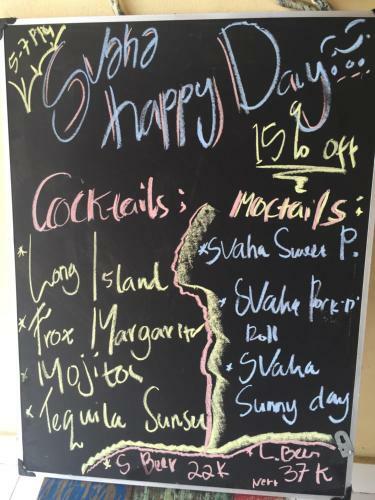 5-7 PM
Svaha
happy Day
15% off
Cocktails:
* Long Island
* Frox Margarita
* Mojito
* Tequila Sunsu
Moctails:
* Svaha Sweet P.
* Svaha Pork-n'
Roll
* Svaha
Sunny day
* S Beer 22K
* L. Beer
Nett 37K